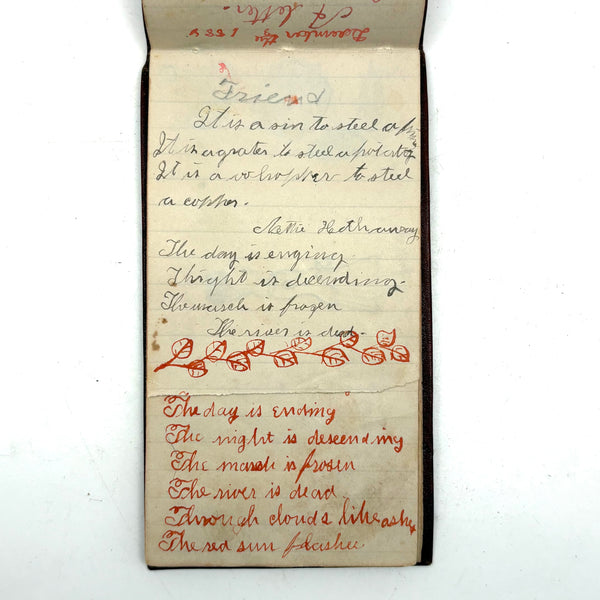 December the
A letter.
Friend
It is a sin to steel a pin
It is a grater to steel a potatoy
It is a vohopper to steel
a copper.
Nettie Hathaway
The day is enging.
Thight is decending.
The march is frozen
The river is dead.
The day is ending
The night is descending
The marsh is frosen
The river is dead
Through clouds like ashes
The red sun flashes